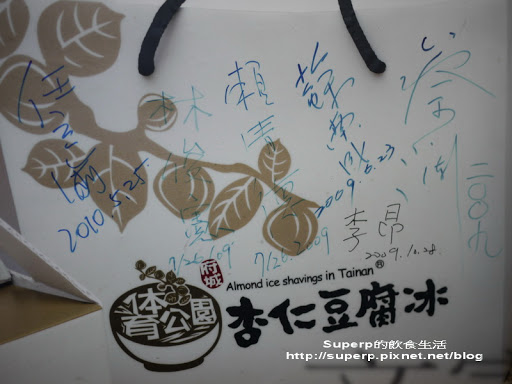 2010.5.25
林俊憲
7/26/'09
賴清德
7/26.2009
2009.6.23
李昂
2009.12.28
二00九
府城
体育公園
Almond ice shavings in Tainan®
杏仁豆腐冰
Superp的飲食生活
http://superp.pixnet.net/blog